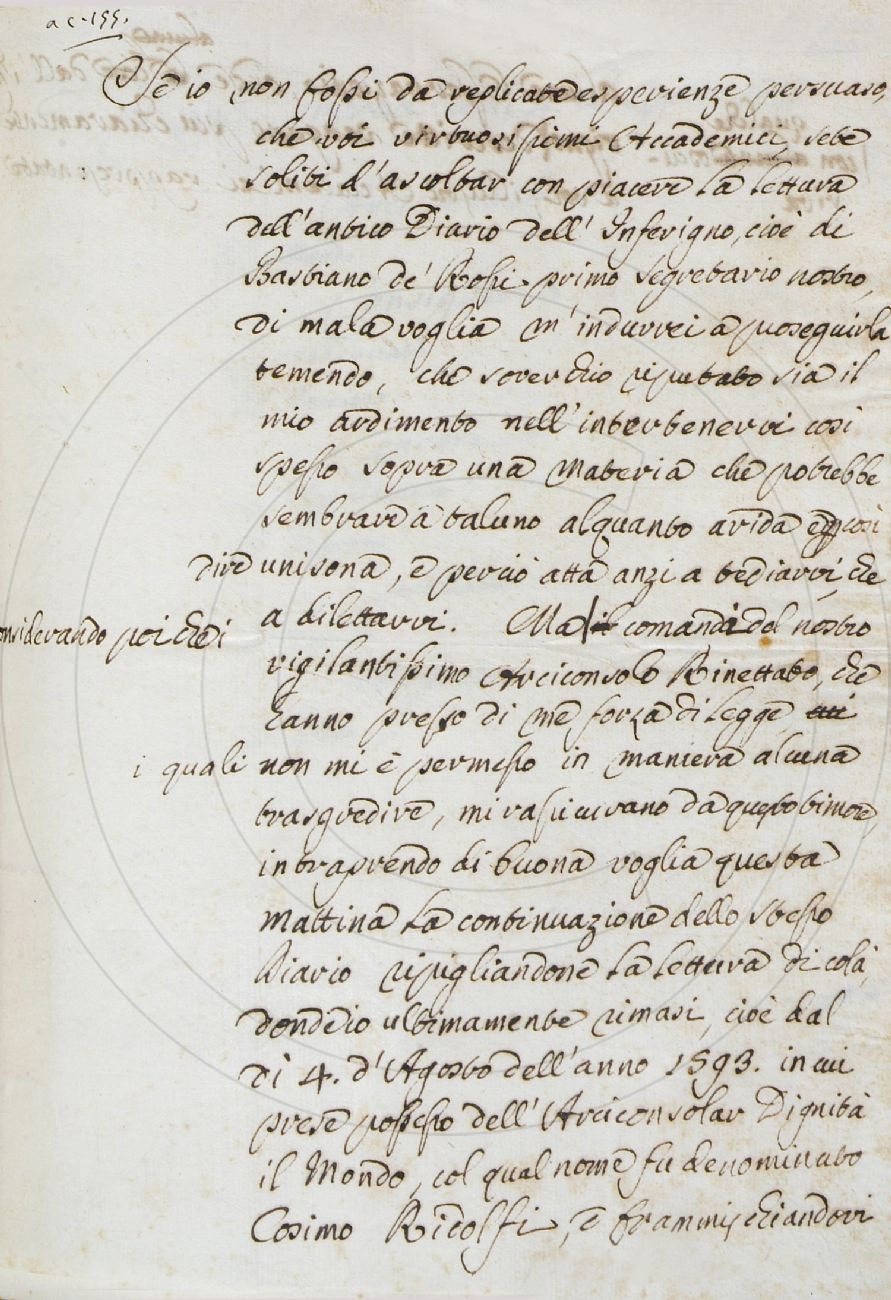 a c. 155.
Se io non fossi da replicate esperienze persuaso,
che voi virtuosissimi Accademici, sete
soliti d'ascoltar con piacere la lettura
dell'antico Diario dell'Inferigno, cioè di
Bastiano de' Rossi primo segretario nostro,
di mala voglia m'indurrei a proseguirla
temendo, che soverchio riputato sia il
mio ardimento nell'intertenervi così
spesso sopra una materia che potrebbe
sembrare a taluno alquanto arida e p così
dire unisona, e perciò atta anzi a tediarvi, che
a dilettarvi. Ma il comandi del nostro
considerando poi che i
vigilantissimo Arciconsolo Rinettato, che
hanno presso di me forza di legge cui
i quali non mi è permesso in maniera alcuna
trasgredire, mi rassicurano da questo timore,
intraprendo di buona voglia questa
mattina la continuazione dello stesso
Diario ripigliandone la lettura di colà,
dond'eio ultimamente rimasi, cioè dal
dì 4. d'Agosto dell'anno 1593. in cui
prese possesso dell'Arciconsolar Dignità
il Mondo, col qual nome fu denominato
Cosimo Ridolfi, e frammischiandovi